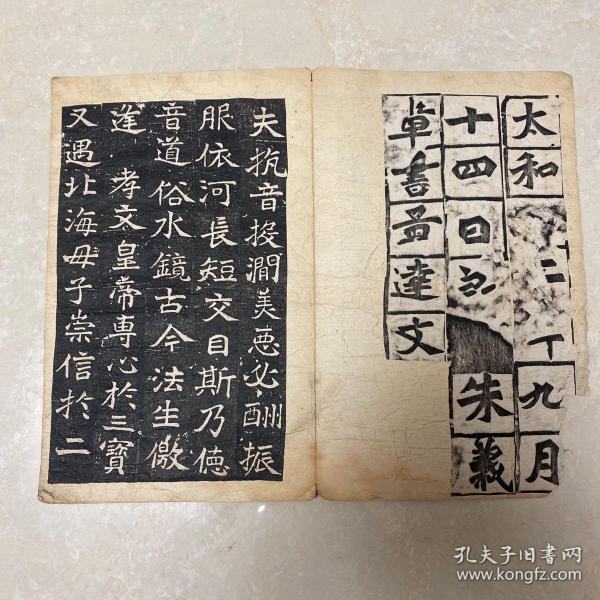 太和二九月
十四日朱義
章書孟達文
夫抗音投澗美惡必酬振
服依河長短交目斯乃德
音道俗水鏡古今法生儌
逢孝文皇帝專心於三寶
又遇北海母子崇信於二
孔夫子旧書网
www.kongfz.com